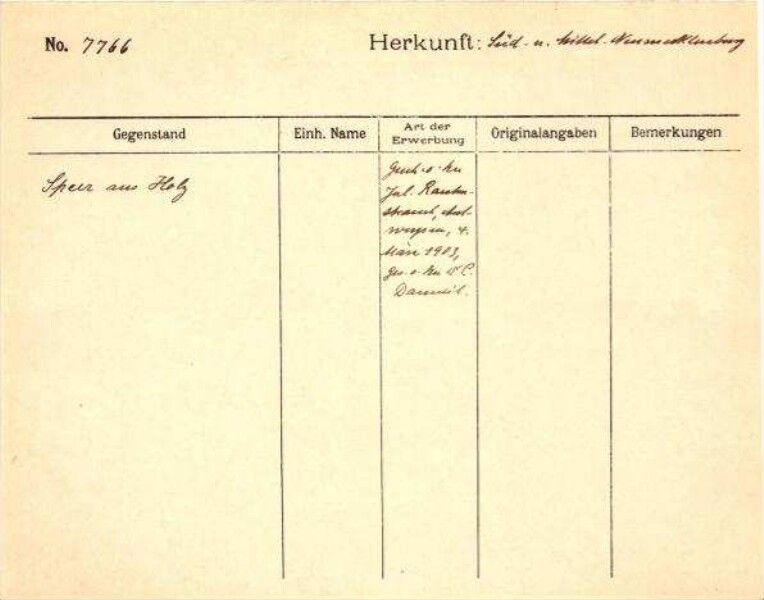 No. 7766
Herkunft: Süd- u. Mittel-Neumecklenburg
Gegenstand
Einh. Name
Art der
Erwerbung
Originalangaben
Bemerkungen
Speer aus Holz
Gesch. v. Hn
Jul. Rauten-
strauch, Ant-
werpen, 4.
März 1903,
ges. v. Hn
Danneil.